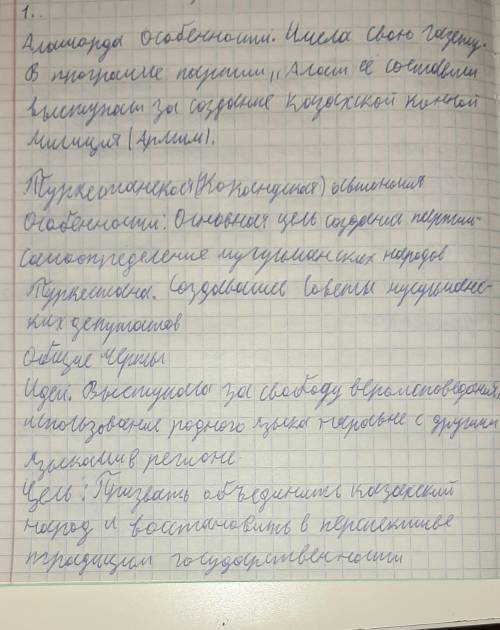 1..
Алашорда особенности. Имела свою газету.
В программе партии ,,Алаш ее составили
выступали за создание Казахской конной
милиции (Армии).
Туркестанская (Кокандская) автономия
Особенности: Основная цель создания партии-
самоопределение мусульманских народов
Туркестана. Создавались Советы мусульманс-
ких депутатов
Общие черты
Идеи. Выступали за свободу вероисповедания,
использования родного языка наравне с другими
языками в регионе
Цель: Призвать объединить казахский
народ и восстановить в перспективе
традиции государственности